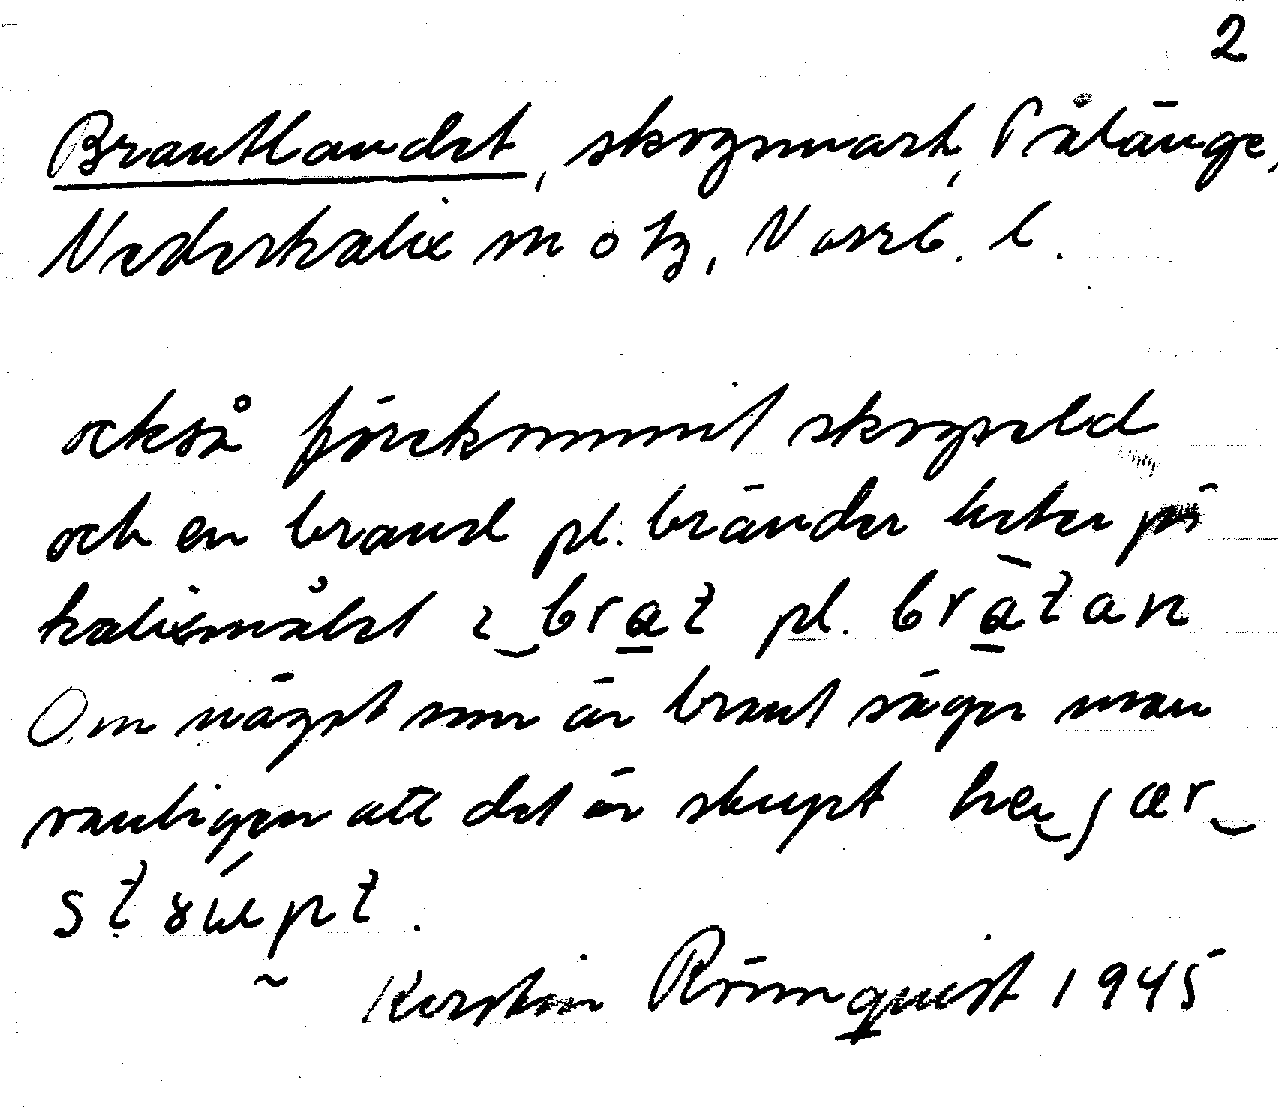 2
Brantlandet, skogsmark, Pålänge,
Nederkalix sn o tg, Norrb. l.
också förekommit skogseld
och en brand pl. bränder heter på
kalixmålet brat pl. bràtan
Om något som är brant säger man
vanligen att det är stupt
Kerstin Rönnquist 1945